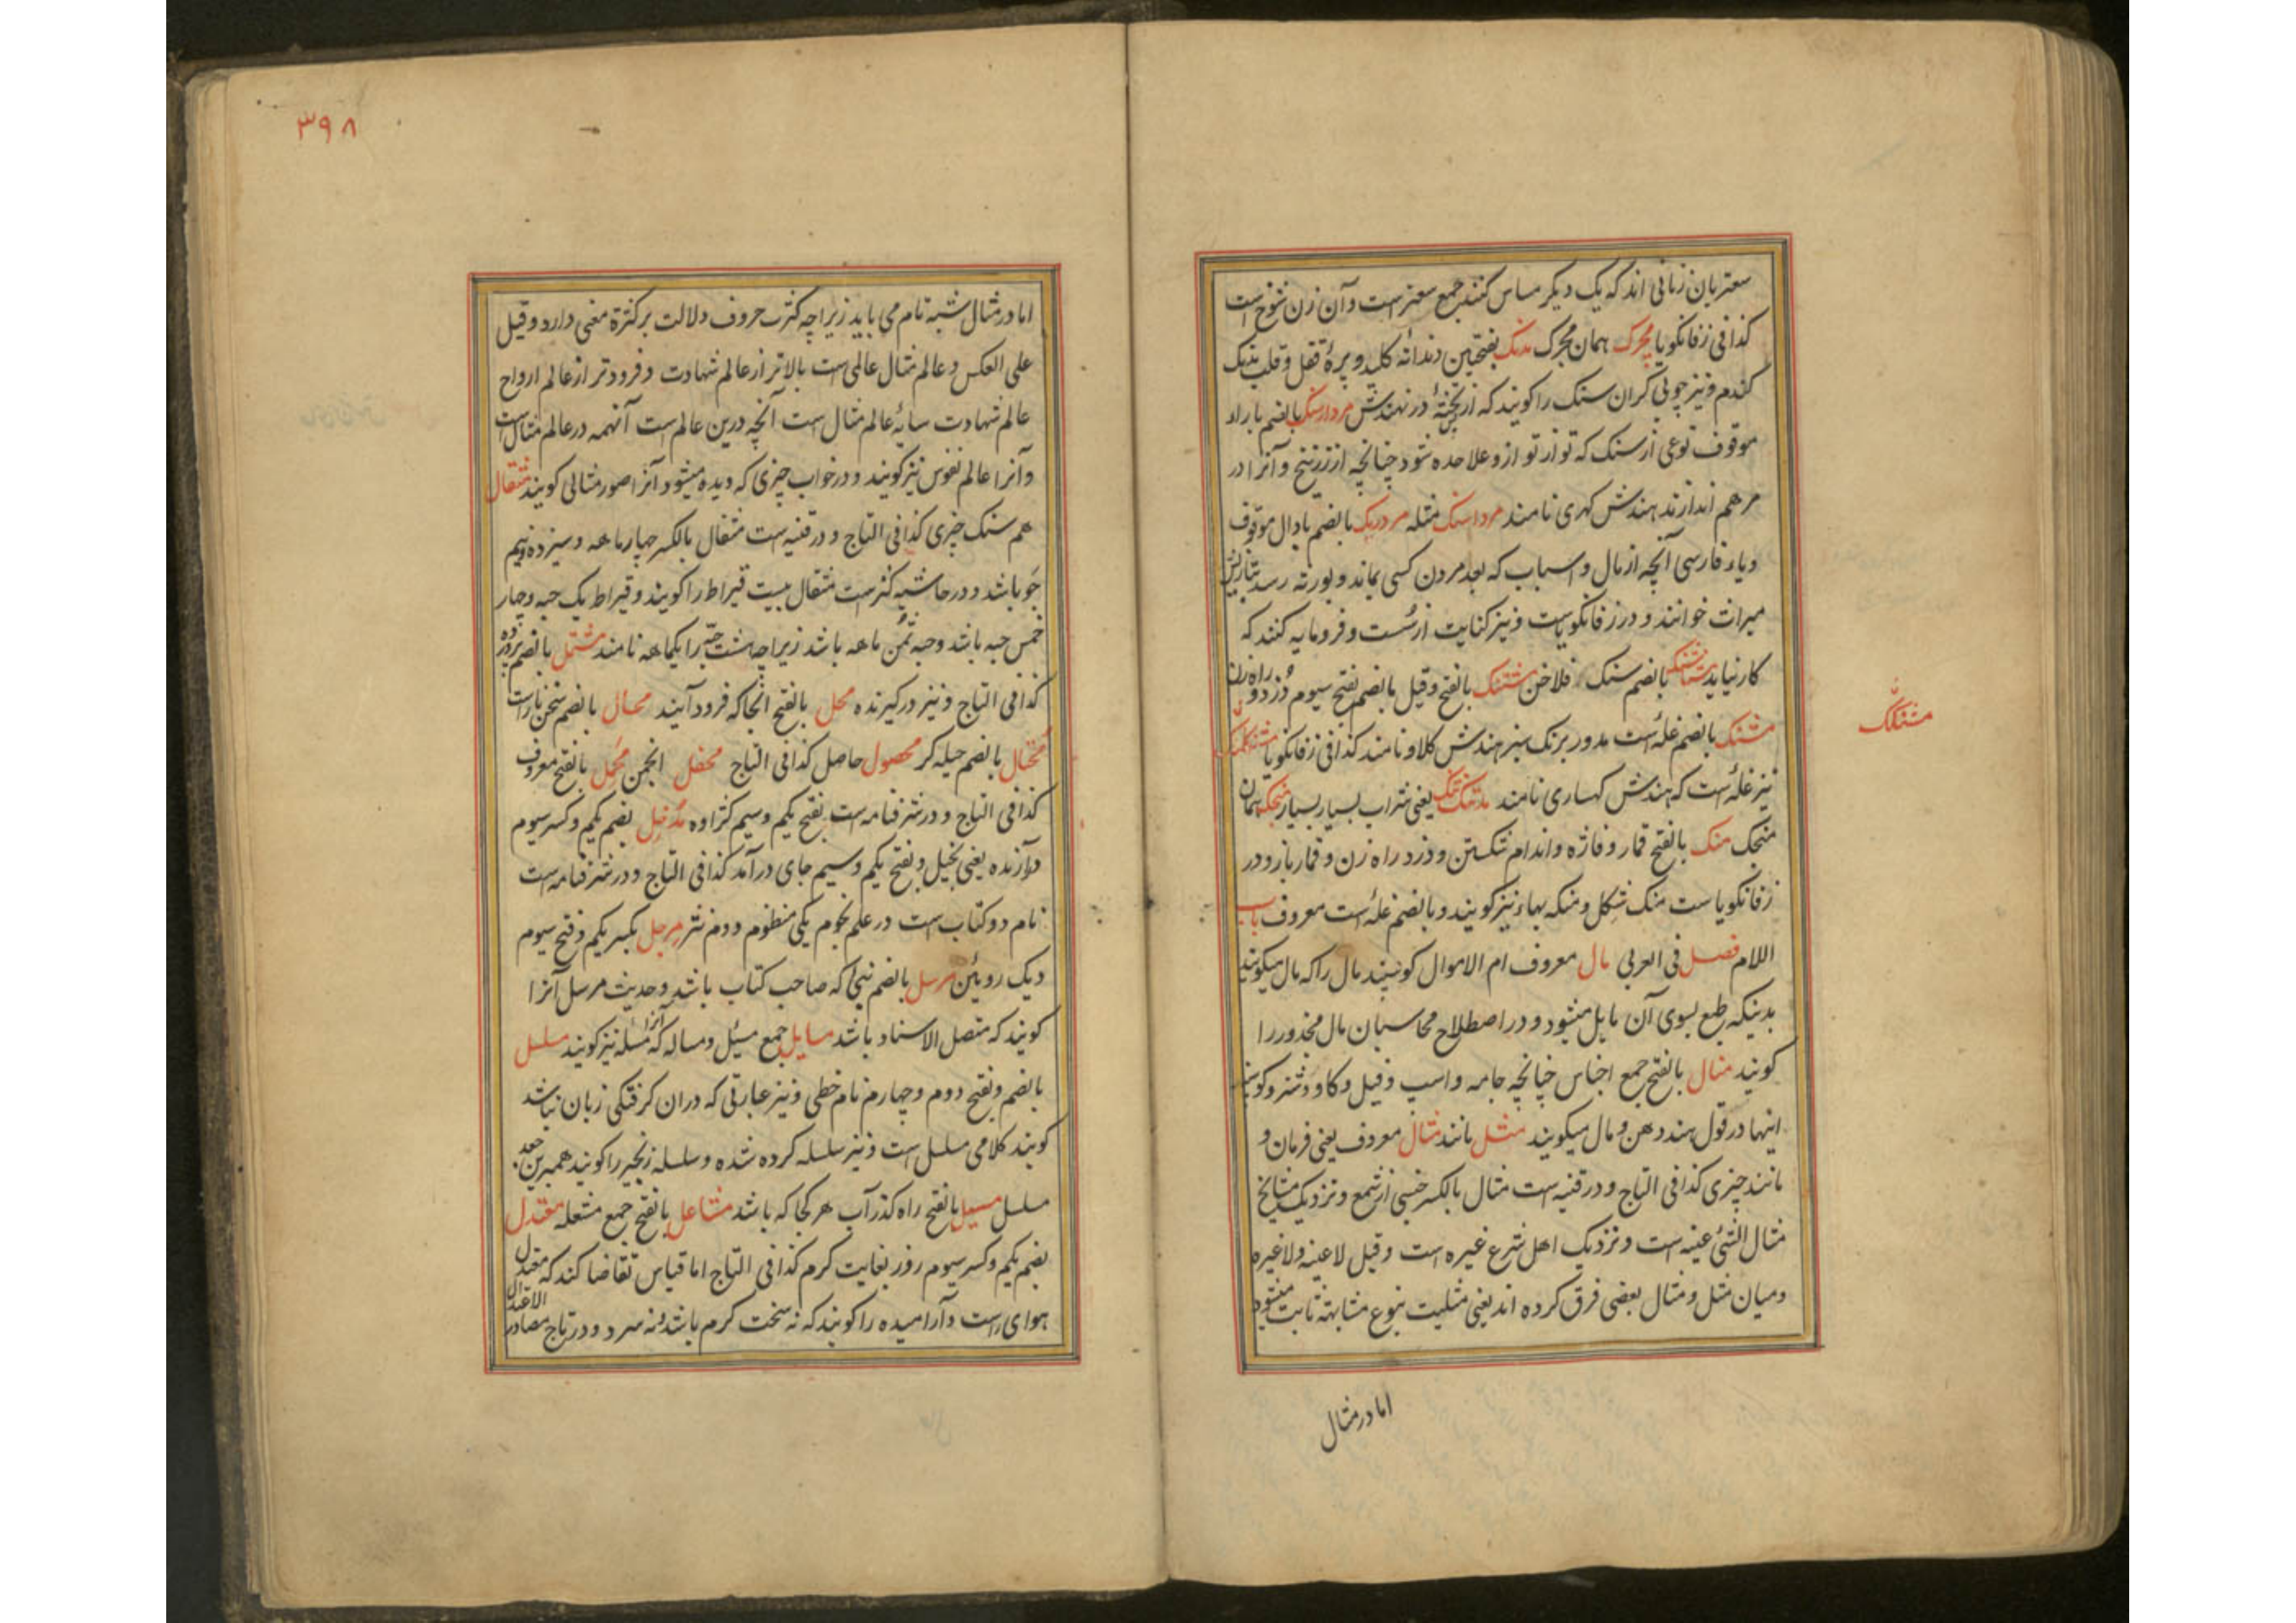 سعتریان زنانی اند که یک دیگر مساس کنند جمع سعتر است وآن زن شوخ است
کذا فی زفانکویا مچرک همان مجرک مدنک بفتحتین دندانه کلید و پره قفل و قلب بتنک
کندم ونیز چوبی کران سنک را کویند که در نهندش مردارسنک بالضم با راء
موقوف نوعی از سنک که تو از تو ازو علاحده شود چنانچه از زرنیخ و آنرا در
مرهم اندازند هندش کهری نامند مرداسنک مثله مردریک بالضم با دال موقوف
ویاء فارسی آنچه از مال و اسباب که بعد مردن کسی بماند و بورثه رسد بتازیش
میراث خوانند و در زفانکویاست ونیز کنایت از سست و فرومایه کنند که
کار نیاید بالضم سنک فلاخن مشتنک بالفتح وقیل بالضم بفتح سیوم دزد و راه زن
مشنک بالضم غله است مدور برنک سبز هندش کلاو نامند کذا فی زفانکویا
مشنکک
نیز غله است که هندش کهساری نامند یعنی شراب بسیار بسیار منجک همان
منجک منک بالفتح قمار و فاژه و اندام شکستن و دزد راه زن و قمار باز و در
زفانکویا ست منک شکل و منکه بهاء نیز کویند و بالضم غله است معروف باب
اللام فصل فی العربی مال معروف ام الاموال کوسپند مال را که مال میکویند
بدینکه طبع بسوی آن مایل میشود و در اصطلاح محاسبان مال مجذور را
کویند منال بالفتح جمع اجناس چنانچه جامه واسپ وفیل وکاو وشتر وکوسپند
اینها در قول هند دهن و مال میکویند مثل مانند مثال معروف یعنی فرمان و
مانند چیزی کذا فی التاج و در قنیه است مثال بالکسر جنسی از شمع و نزدیک مشایخ
مثال الشئ عینه است ونزدیک اهل شرع غیره است وقیل لا عینه ولا غیره
ومیان مثل ومثال بعضی فرق کرده اند یعنی مثلیت بنوع مشابهة ثابت میشود
اما در مثال
۳۹۸
اما در مثال شبه تام می باید زیراچه کثرت حروف دلالت بر کثرة معنی دارد وقیل
علی العکس و عالم مثال عالمی است بالاتر از عالم شهادت و فرودتر از عالم ارواح
عالم شهادت سایه عالم مثال است آنچه درین عالم است آنهمه در عالم مثال است
وآنرا عالم نفوس نیز کویند و در خواب چیزی که دیده میشود آنرا صور مثالی کویند مثقال
هم سنک چیزی کذا فی التاج و در قنیه است مثقال بالکسر چهار ماهه وسیزده ونیم
جو باشد و در حاشیه کنز است مثقال بیست قیراط را کویند و قیراط یک حبه وچهار
خمس حبه باشد وحبه ثمن ماهه باشد زیراچه هشت حبه را یکماهه نامند مشتمل بالضم
کذا فی التاج ونیز درکیرنده محل بالفتح آنجا که فرود آیند محال بالضم سخن ناراست
محتال بالضم حیله کر محصول حاصل کذا فی التاج محفل انجمن محمل بالفتح معروف
کذا فی التاج و در شرفنامه است بفتح یکم وسیم کژاوه مدخل بضم یکم وکسر سیوم
درآرنده یعنی بخیل وبفتح یکم وسیم جای درآمد کذا فی التاج و در شرفنامه است
نام دو کتاب است در علم نجوم یکی منظوم و دوم نثر مرجل بکسر یکم وفتح سیوم
دیک روئین مرسل بالضم نبی که صاحب کتاب باشد وحدیث مرسل آنرا
کویند که متصل الاسناد باشد مسایل جمع مسئل ومساله که آنرا مسئله نیز کویند مسلسل
بالضم وفتح دوم وچهارم نام خطی ونیز عبارتی که دران کرفتکی زبان نباشد
کویند کلامی مسلسل است ونیز سلسله کرده شده وسلسله زنجیر را کویند همبرین جعد
مسلسل مسیل بالفتح راه کذر آب هر کجا که باشد مشاعل بالفتح جمع مشعله معتدل
بضم یکم وکسر سیوم روز بغایت کرم کذا فی التاج اما قیاس تقاضا کند که معتدل
هوای راست وآرامیده را کویند که نه سخت کرم باشد ونه سرد و در تاج مصادر الاعتدال